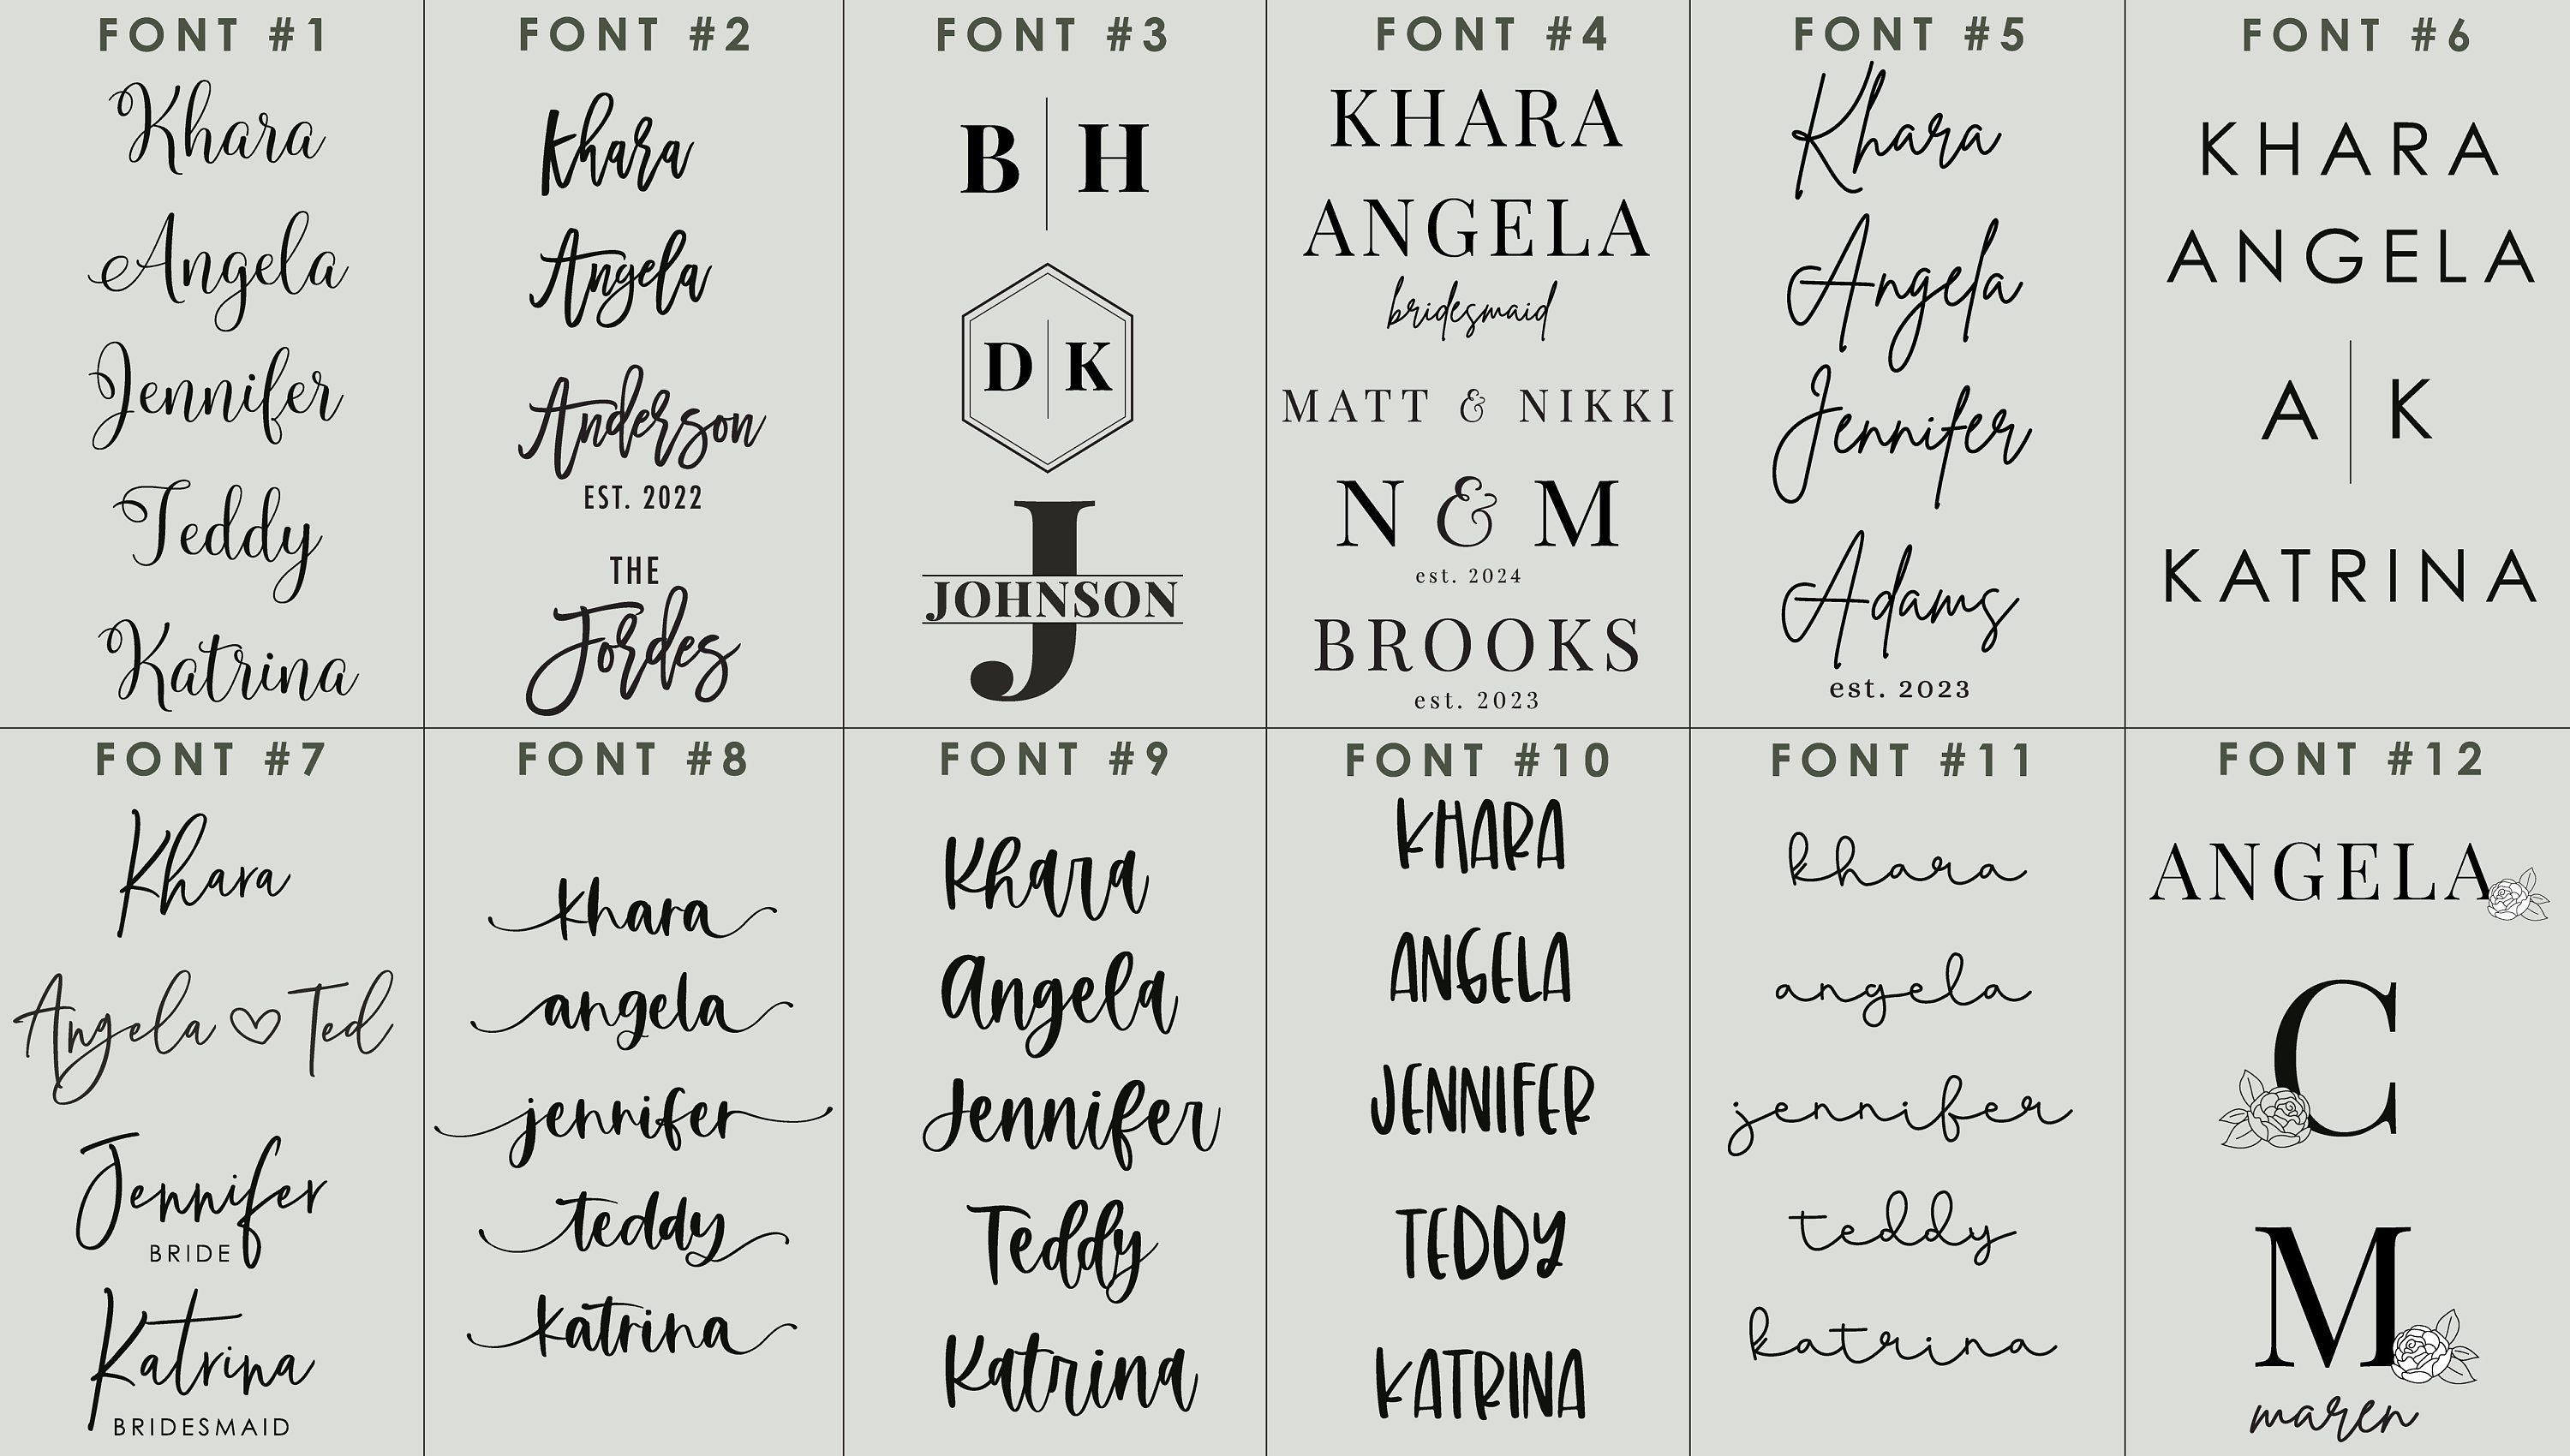 FONT #1
Khara
Angela
Jennifer
Teddy
Katrina
FONT #2
Khara
Angela
Anderson
EST. 2022
THE
Jordes
FONT #3
B | H
D | K
J
JOHNSON
FONT #4
KHARA
ANGELA
bridesmaid
MATT & NIKKI
N & M
est. 2024
BROOKS
est. 2023
FONT #5
Khara
Angela
Jennifer
Adams
est. 2023
FONT #6
KHARA
ANGELA
A | K
KATRINA
FONT #7
Khara
Angela ♡ Ted
Jennifer
BRIDE
Katrina
BRIDESMAID
FONT #8
khara
angela
jennifer
teddy
katrina
FONT #9
Khara
Angela
Jennifer
Teddy
Katrina
FONT #10
KHARA
ANGELA
JENNIFER
TEDDY
KATRINA
FONT #11
khara
angela
jennifer
teddy
katrina
FONT #12
ANGELA
C
M
maren